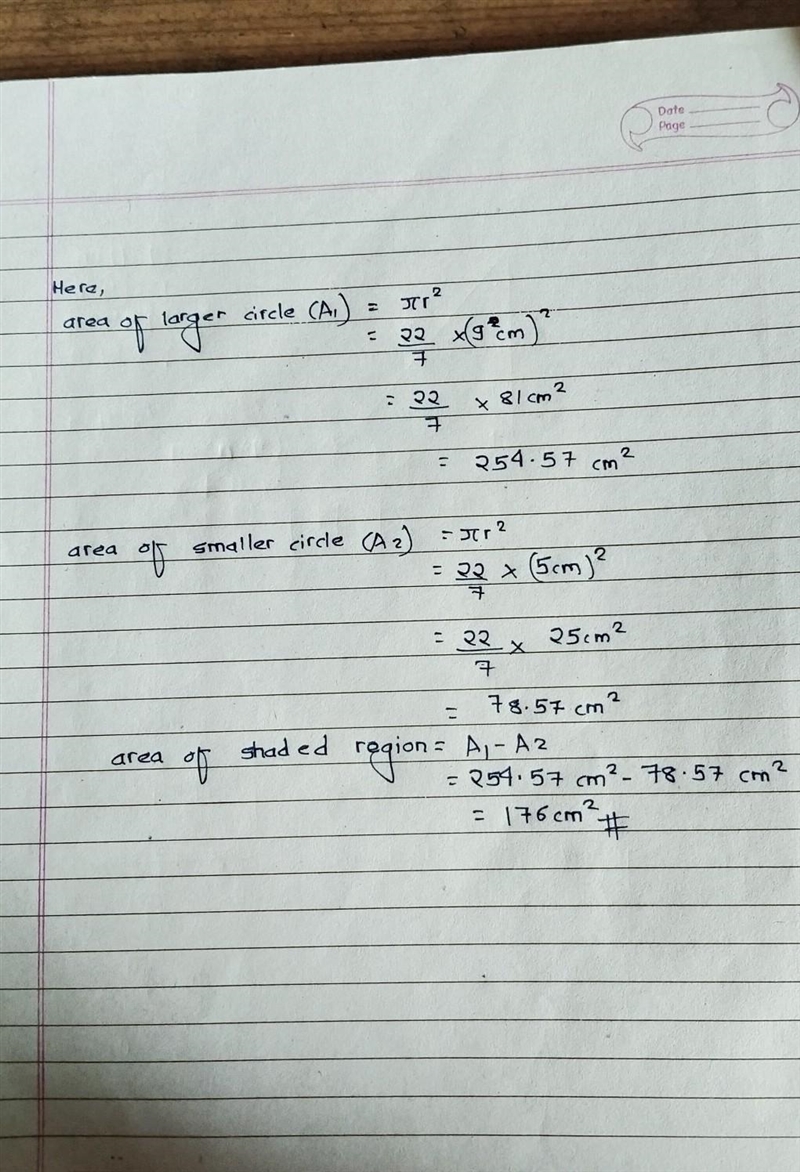 Date
Page
Here,
area of larger circle (A₁) = πr²
= 22/7 × (9 cm)²
= 22/7 × 81 cm²
= 254.57 cm²
area of smaller circle (A2) = πr²
= 22/7 × (5cm)²
= 22/7 × 25cm²
= 78.57 cm²
area of shaded region = A₁ - A2
= 254.57 cm² - 78.57 cm²
= 176 cm² #